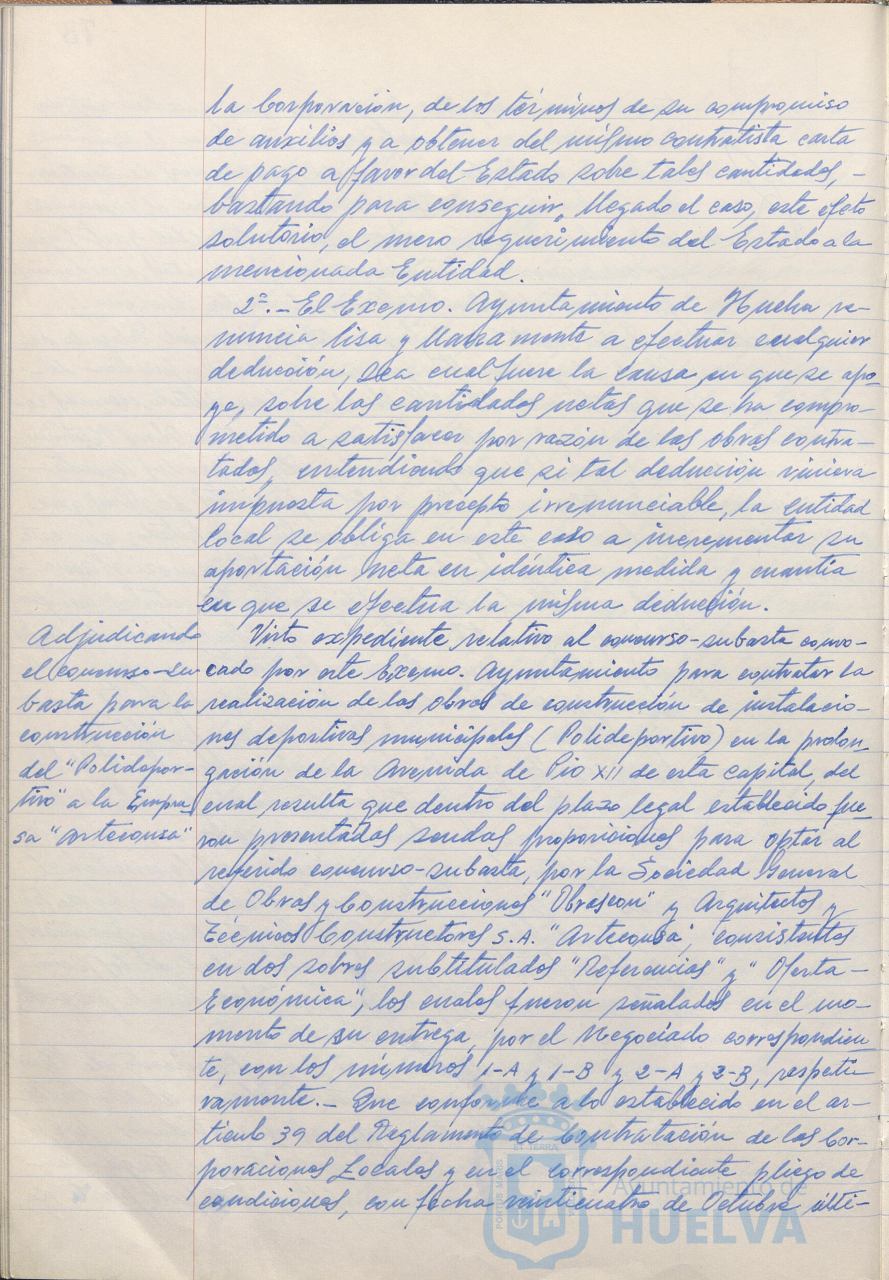 la Corporación, de los términos de su compromiso
de auxilios y a obtener del mismo contratista carta
de pago a favor del Estado sobre tales cantidades, -
bastando para conseguir, llegado el caso, este efecto
solutorio, el mero requerimiento del Estado a la
mencionada Entidad.
2º.- El Excmo. Ayuntamiento de Huelva re-
nuncia lisa y llanamente a efectuar cualquier
deducción, sea cual fuere la causa en que se apo-
ye, sobre las cantidades netas que se ha compro-
metido a satisfacer por razón de las obras contra-
tadas, entendiendo que si tal deducción viniera
impuesta por precepto irrenunciable, la entidad
local se obliga en este caso a incrementar su
aportación neta en idéntica medida y cuantía
en que se efectua la misma deducción.
Adjudicando
el concurso-su-
basta para la
construcción
del "Polidepor-
tivo" a la Empre-
sa "Arteconsa"
Visto expediente relativo al concurso-subasta convo-
cado por este Excmo. Ayuntamiento para contratar la
realización de las obras de construcción de instalacio-
nes deportivas municipales (Polideportivo) en la prolon-
gación de la Avenida de Pio XII de esta capital, del
cual resulta que dentro del plazo legal establecido fue-
ron presentadas sendas proposiciones para optar al
referido concurso-subasta, por la Sociedad General
de Obras y Construcciones "Obrascon" y Arquitectos y
Técnicos Constructores S.A. "Arteconsa", consistentes
en dos sobres subtitulados "Referencias" y "Oferta -
Económica", los cuales fueron señalados en el mo-
mento de su entrega, por el Negociado correspondien-
te, con los números 1-A y 1-B y 2-A y 2-B, respeti-
vamente.- Que conforme a lo establecido en el ar-
tículo 39 del Reglamento de Contratación de las Cor-
poraciones Locales y en el correspondiente pliego de
condiciones, con fecha veinticuatro de Octubre últi-
PORTUS MARIS
ET TERRÆ
Ayuntamiento de
HUELVA